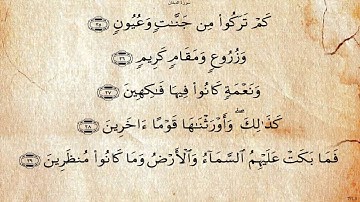 سورة الدخان
كَمۡ تَرَكُواْ مِن جَنَّٰتٖ وَعُيُونٖ ٢٥
وَزُرُوعٖ وَمَقَامٖ كَرِيمٖ ٢٦
وَنَعۡمَةٖ كَانُواْ فِيهَا فَٰكِهِينَ ٢٧
كَذَٰلِكَۖ وَأَوۡرَثۡنَٰهَا قَوۡمًا ءَاخَرِينَ ٢٨
فَمَا بَكَتۡ عَلَيۡهِمُ ٱلسَّمَآءُ وَٱلۡأَرۡضُ وَمَا كَانُواْ مُنظَرِينَ ٢٩